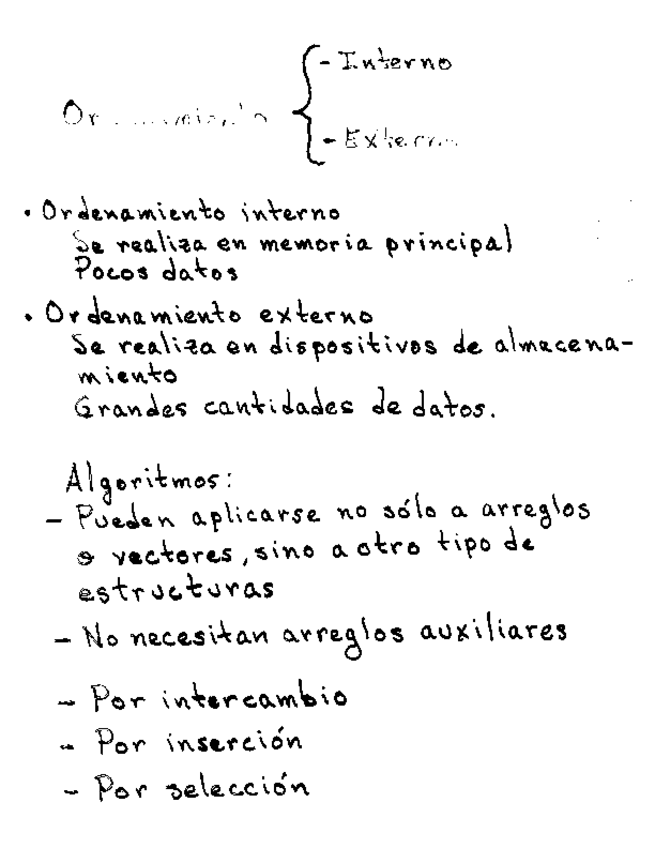 - Interno
- Extern
• Ordenamiento interno
Se realiza en memoria principal
Pocos datos
• Ordenamiento externo
Se realiza en dispositivos de almacena-
miento
Grandes cantidades de datos.
Algoritmos:
- Pueden aplicarse no sólo a arreglos
o vectores, sino a otro tipo de
estructuras
- No necesitan arreglos auxiliares
- Por intercambio
- Por inserción
- Por selección